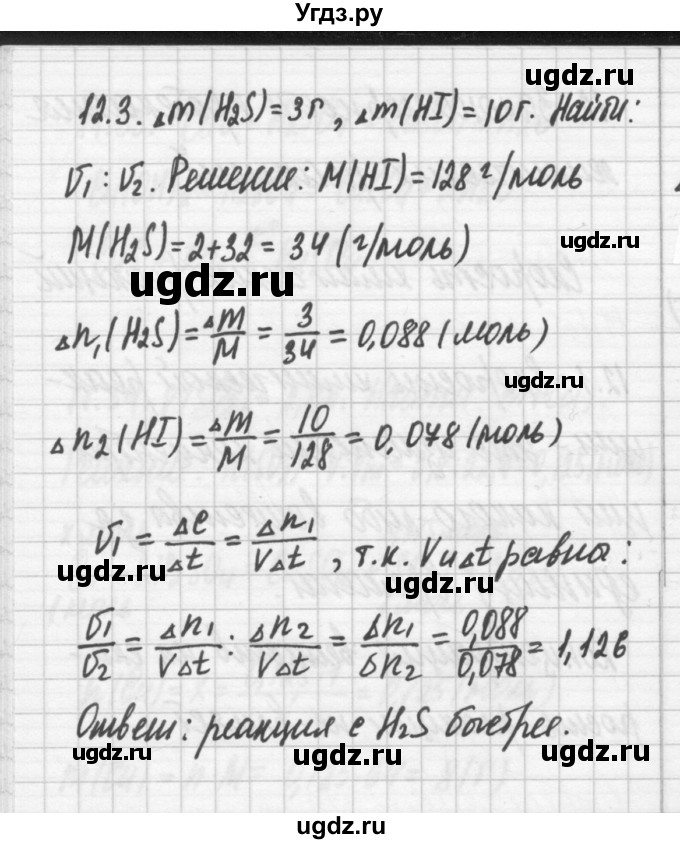 Угдз.ру
ugdz.ru
12.3. Δm(H₂S)=3г, Δm(HI)=10г. Найти:
υ₁ : υ₂. Решение: M(HI)=128 г/моль
ugdz.ru
M(H₂S)=2+32= 34 (г/моль)
ugdz.ru
Δn₁(H₂S)=Δm/M = 3/34 = 0,088 (моль)
ugdz.ru
Δn₂(HI)=Δm/M = 10/128 = 0,078 (моль)
ugdz.ru
υ₁ = Δc/Δt = Δn₁/VΔt , т.к. V и Δt равны:
ugdz.ru
ugdz.ru
υ₁/υ₂ = Δn₁/VΔt : Δn₂/VΔt = Δn₁/Δn₂ = 0,088/0,078 = 1,126
Ответ: реакция с H₂S быстрее.
ugdz.ru
ugdz.ru
ugdz.ru
ugdz.ru